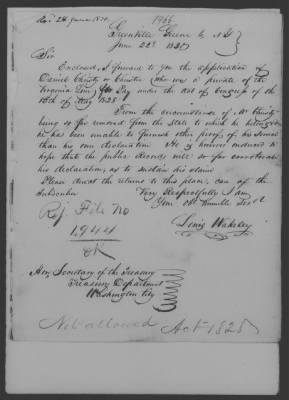 Rec. 28 June 1830
1966
Greenville Greene Co N.Y.
June 22d 1830
Sir
Enclosed, I forward to you the application of
Daniel Christy or Christie (who was a private of the
Virginia Line) for Pay under the act of Congress of the
15th of May 1828
From the circumstances of Mr Christy
being so far removed from the State to which he belonged
he has been unable to furnish other proof of his service
than his own declaration. He is however induced to
hope that the public records will so far corroborate
his declaration, as to sustain his claim
Please direct the returns to this place, care of the
Subscriber
Very Respectfully I am
Your Obt Humble Servt
Lewis Wakeley
Rej. File No
1944
OK
Hon. Secretary of the Treasury
Treasury Department
Washington City
Not allowed Act 1828